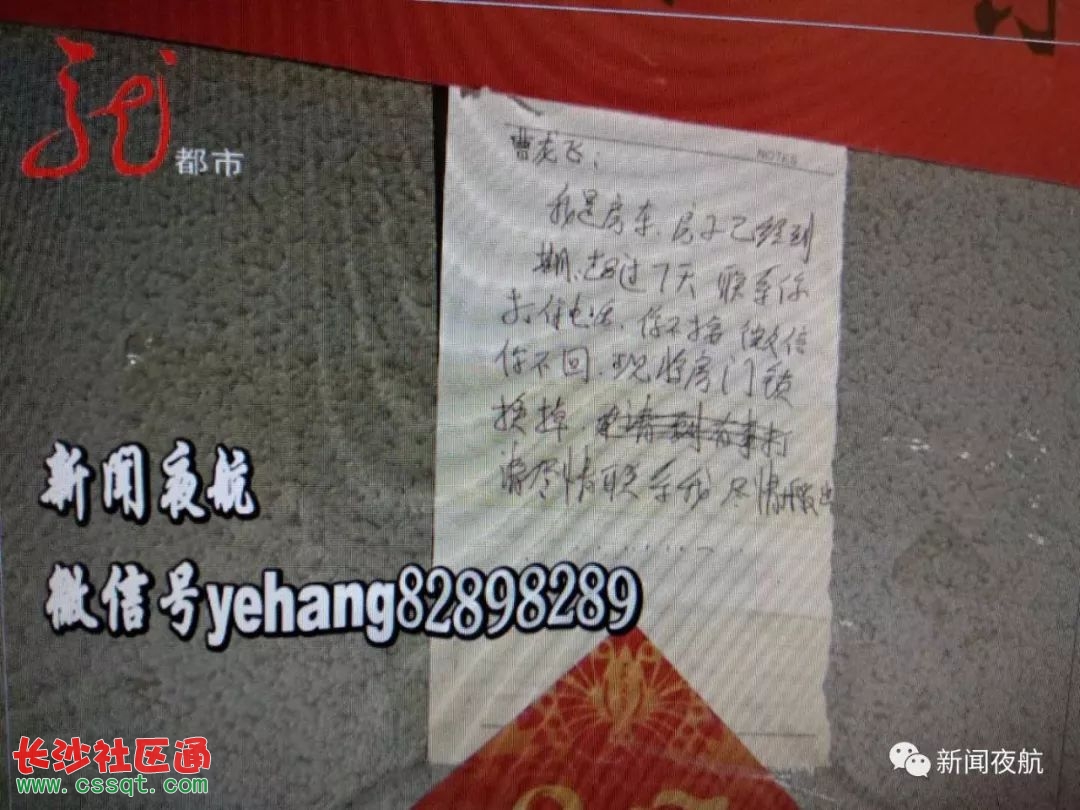 都市
NOTES
曹龙飞：
我是房东、房子已经到
期、超过7天 联系你
打电话、你不接 微信
你不回、现将房门锁
换掉、
请尽快联系我 尽快搬
新闻夜航
微信号yehang82898289
长沙社区通
www.cssqt.com
新闻夜航